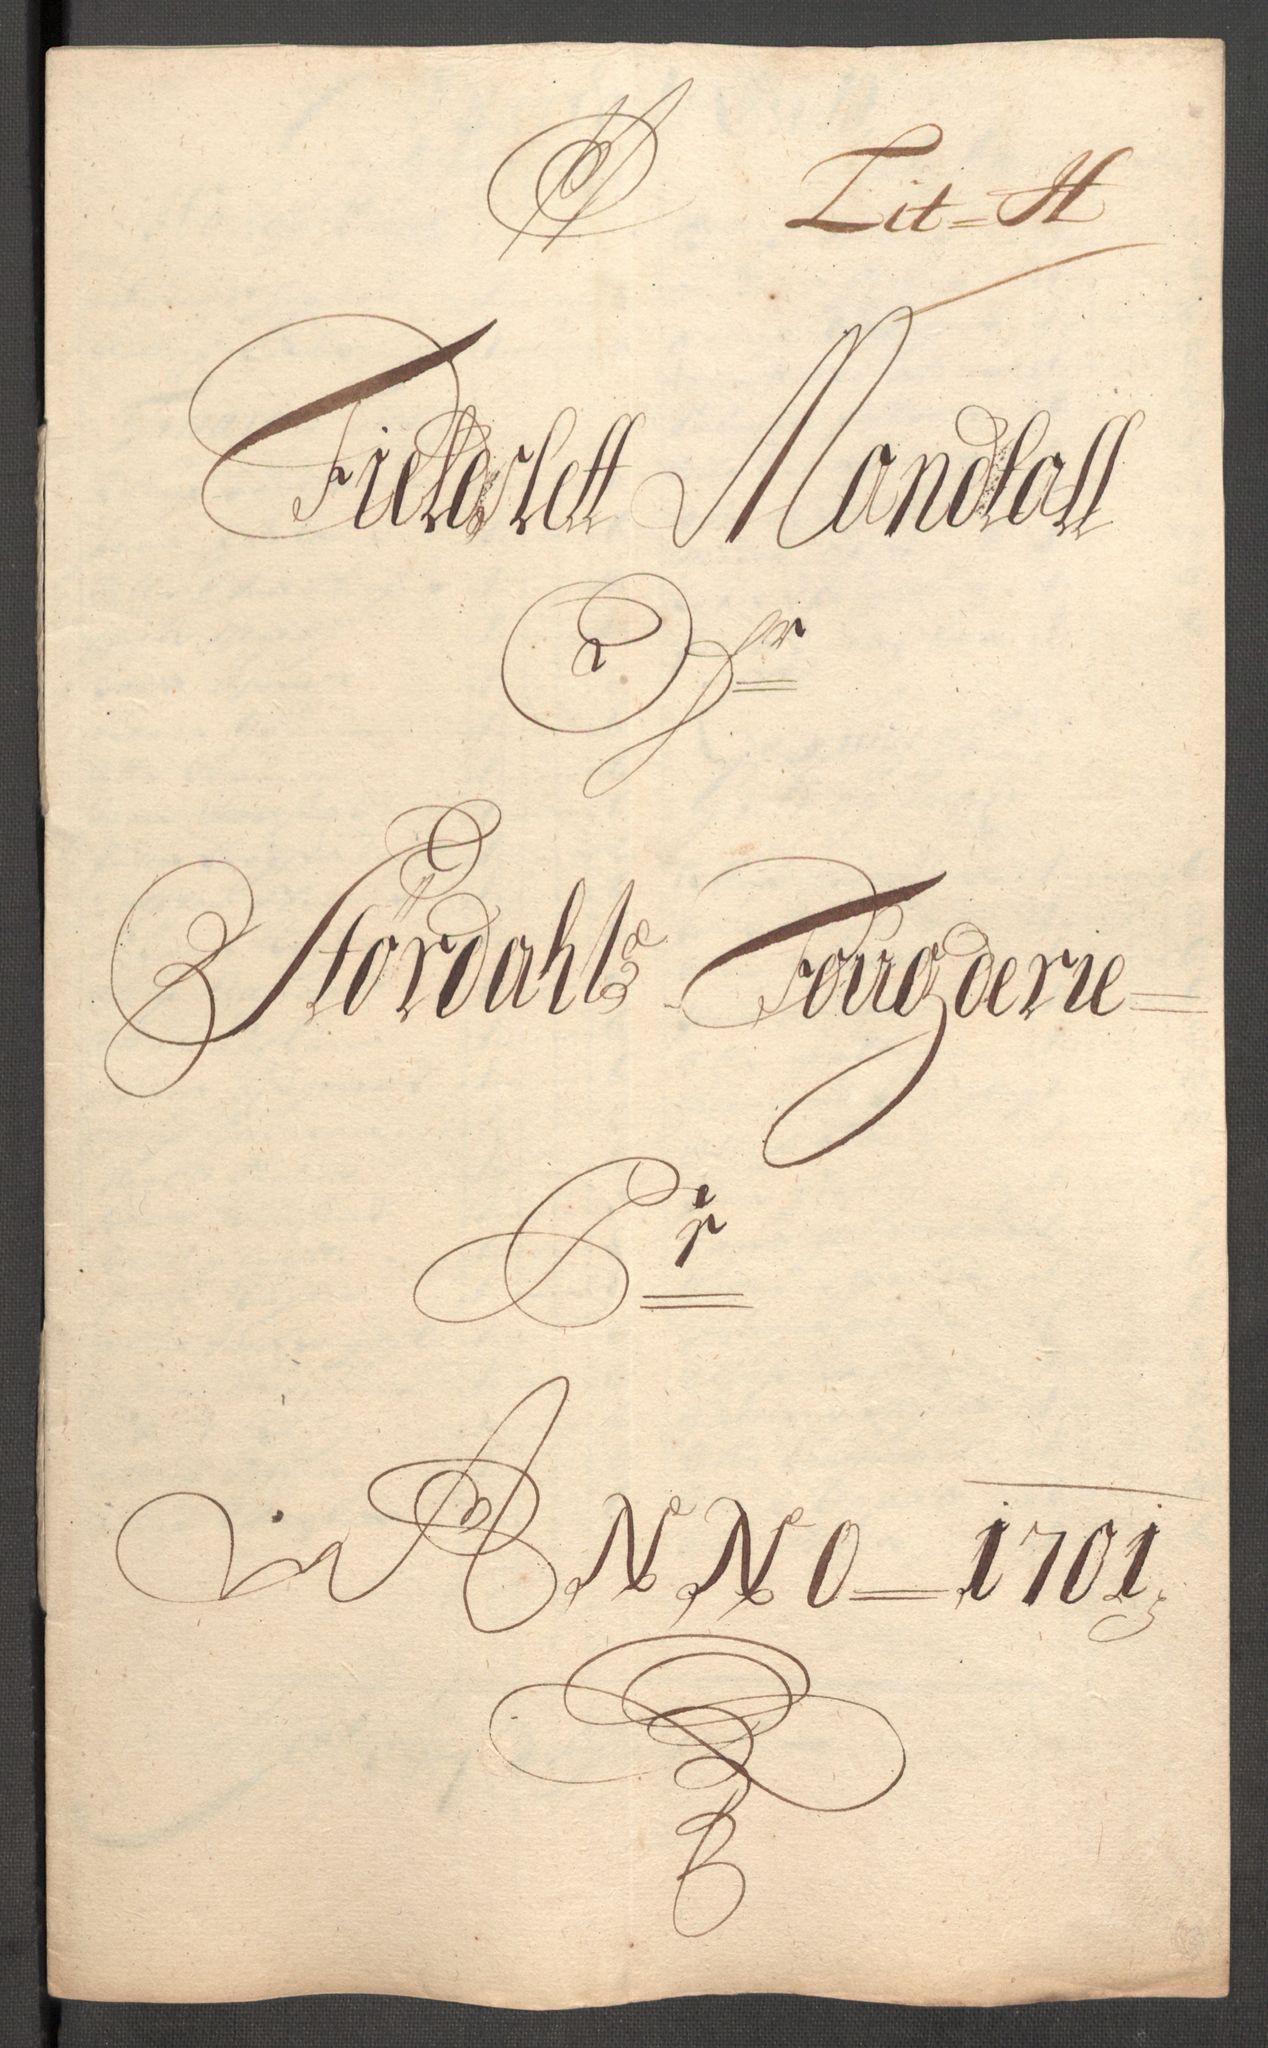 Lit = H
Fieldslett Mandtall
Ofr
Størdahls Fougderie =
Pr
ANNO = 1701